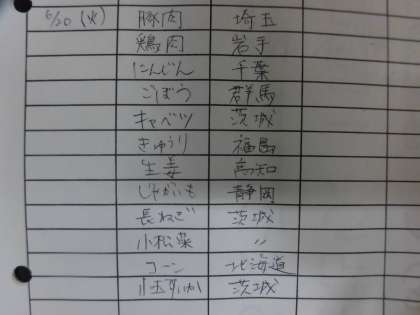 6/20 (火) 豚肉 埼玉
鶏肉 岩手
にんじん 千葉
ごぼう 群馬
キャベツ 茨城
きゅうり 福島
生姜 高知
じゃがいも 静岡
長ねぎ 茨城
小松菜 〃
コーン 北海道
小玉すいか 茨城